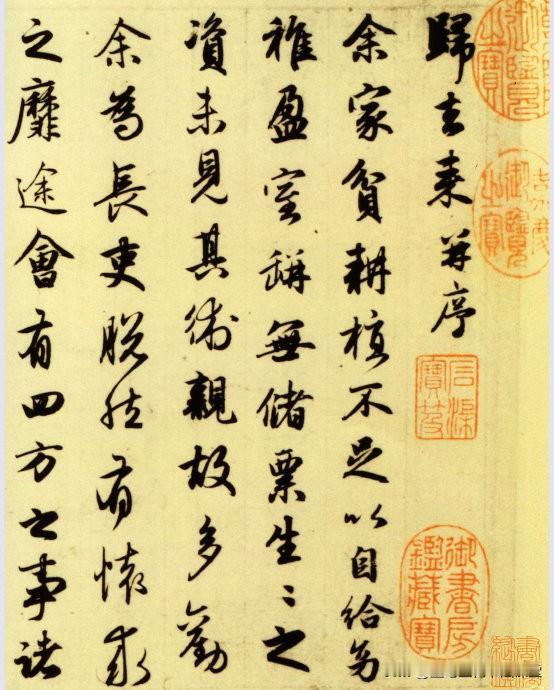 歸去来并序
余家貧耕植不足以自給幼
稚盈室缾無儲粟生々之
資未見其術親故多勸
余為長吏脱然有懷求
之靡途會有四方之事諸
御覽
之寶
嘉慶
御覽
之寶
石渠
寶笈
御書房
鑑藏寶